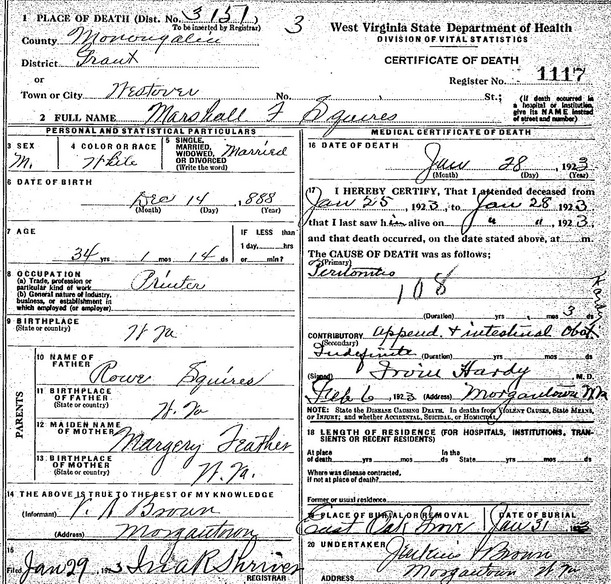 1 PLACE OF DEATH (Dist. No. 3151
To be inserted by Registrar)
3
County Monongalia
District Grant
or
Town or City Westover No. St.;
2 FULL NAME Marshall F Squires
West Virginia State Department of Health
DIVISION OF VITAL STATISTICS
CERTIFICATE OF DEATH
Register No. 1117
(If death occurred in a hospital or institution, give its NAME instead of street and number)
PERSONAL AND STATISTICAL PARTICULARS
3 SEX
M.
4 COLOR OR RACE
White
5 SINGLE, MARRIED, WIDOWED, OR DIVORCED (Write the word)
Married
6 DATE OF BIRTH
Dec 14, 888
(Month) (Day) (Year)
7 AGE
34 yrs 1 mos 14 ds
IF LESS than
1 day, hrs
or min?
8 OCCUPATION
(a) Trade, profession or
particular kind of work
(b) General nature of industry,
business, or establishment in
which employed (or employer)
Printer
9 BIRTHPLACE
(State or country)
W Va
PARENTS
10 NAME OF
FATHER
Rowe Squires
11 BIRTHPLACE OF FATHER
(State or country)
W. Va
12 MAIDEN NAME
OF MOTHER
Margery Feather
13 BIRTHPLACE
OF MOTHER
(State or country)
W. Va.
14 THE ABOVE IS TRUE TO THE BEST OF MY KNOWLEDGE
(Informant) Brown
(Address) Morgantown
15
Filed Jan 29, 1923 Ina R Shriver
REGISTRAR
MEDICAL CERTIFICATE OF DEATH
16 DATE OF DEATH
Jan 28, 1923
(Month) (Day) (Year)
17 I HEREBY CERTIFY, That I attended deceased from
Jan 25, 1923, to Jan 28 1923
that I last saw him alive on " " 1923,
and that death occurred, on the date stated above, at m.
The CAUSE OF DEATH was as follows:
(Primary)
Peritonitis
108
(Duration) yrs mos 3 ds
CONTRIBUTORY append. + intestinal Obst
(Secondary)
Indefinite (Duration) yrs mos ds
(Signed) Irvin Hardy M. D.
Feb 6, 1923 (Address) Morgantown
NOTE: State the DISEASE CAUSING DEATH. In deaths from VIOLENT CAUSES, State MEANS
OF INJURY; and whether ACCIDENTAL, SUICIDAL, or HOMICIDAL.
18 LENGTH OF RESIDENCE (FOR HOSPITALS, INSTITUTIONS, TRANSIENTS OR RECENT RESIDENTS)
At place of death yrs mos ds In the State yrs mos ds
Where was disease contracted,
if not at place of death?
Former or usual residence
19 PLACE OF BURIAL OR REMOVAL
East Oak Grove
DATE OF BURIAL
Jan 31
20 UNDERTAKER Jenkins & Brown
ADDRESS Morgantown W Va